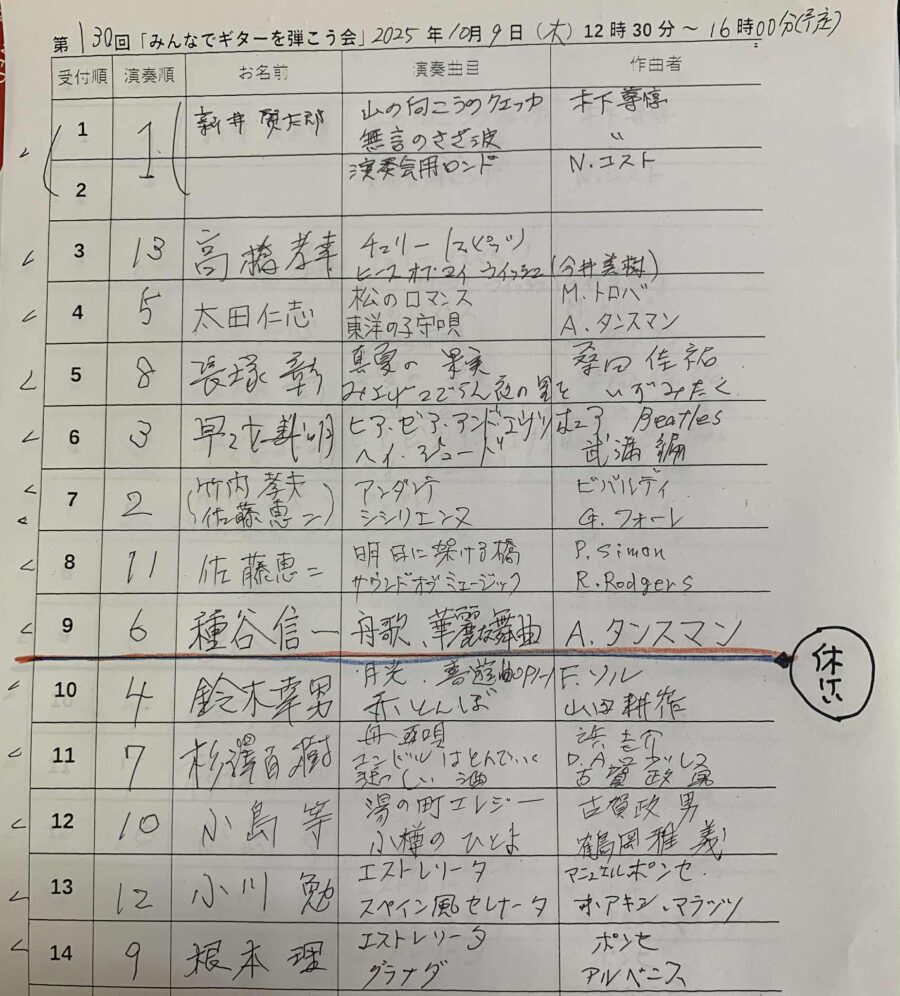 第130回「みんなでギターを弾こう会」2025年10月9日(木)12時30分~16時00分(予定)
受付順 演奏順 お名前 演奏曲目 作曲者
1 1 新井 賢太郎 山の向こうのクエッカ 木下尊惇
無言のさざ波 〃
2 演奏会用ロンド N.コスト
3 13 高橋孝幸 チェリー(スピッツ)
ピース オブ マイ ウィッシュ(今井美樹)
4 5 太田仁志 松のロマンス M.トロバ
東洋の子守唄 A.タンスマン
5 8 長塚 彰 真夏の果実 桑田佳祐
みあげてごらん夜の星を いずみたく
6 3 ヒア・ゼア・アンド・エヴリ Beatles
ヘイ・ジュード 武満編
7 2 竹内孝夫 アンダンテ ビバルディ
(佐藤恵二) シシリエンヌ G.フォーレ
8 11 佐藤恵二 明日に架ける橋 P.Simon
サウンドオブミュージック R.Rodgers
9 6 種谷信一 舟歌、華麗な舞曲 A.タンスマン
休け
10 4 鈴木幸男 月光. F.ソル
赤とんぼ 山田耕作
11 7 杉澤百樹 舟唄 浜圭介
コンドルはとんでいく D.A.ロブレス
悲しい酒 古賀政男
12 10 小島 等 湯の町エレジー 古賀政男
小樽のひとよ 鶴岡雅義
13 12 小川 勉 エストレリータ マニュエルポンセ.
スペイン風セレナータ ホアキン.マラッツ
14 9 根本 理 エストレリータ ポンセ
グラナダ アルベニス